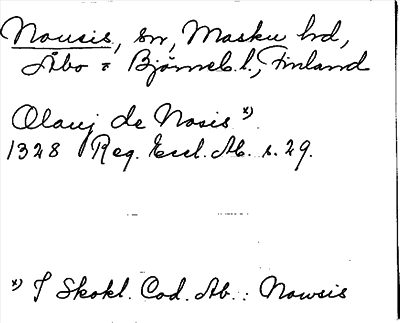 Nousis, sn, Masku hd,
Åbo = Björneb. l., Finland
Olauj de Nosis *).
1328 Reg. Eccl. Ab. s. 29.
*) I Skokl. Cod. Ab.: Nowsis